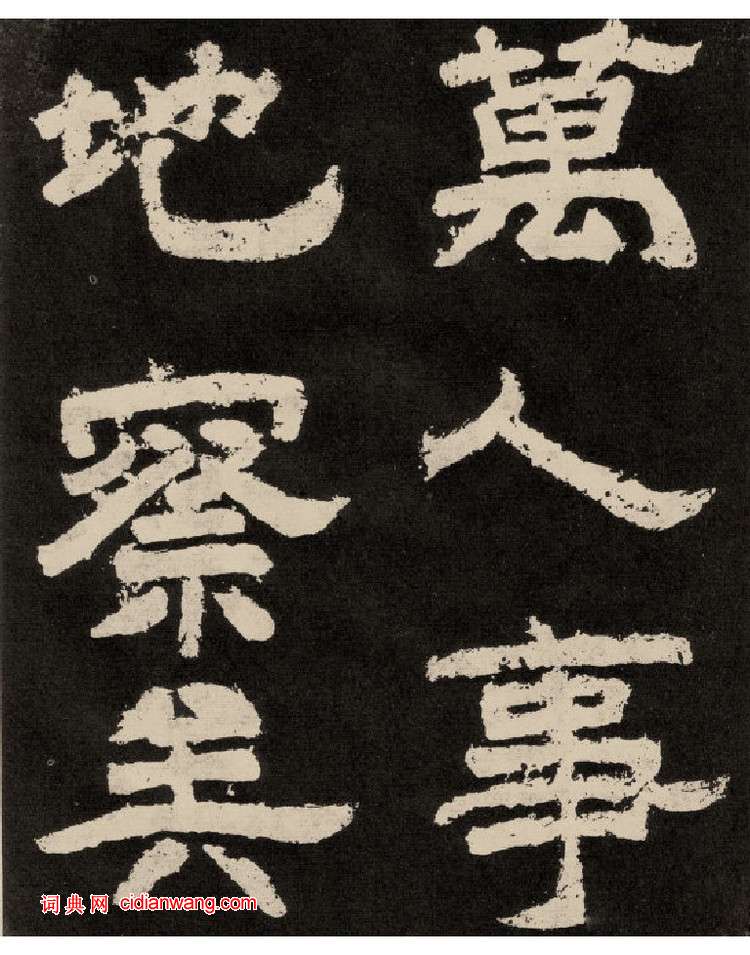 萬人事
地察
词典网 cidianwang.com